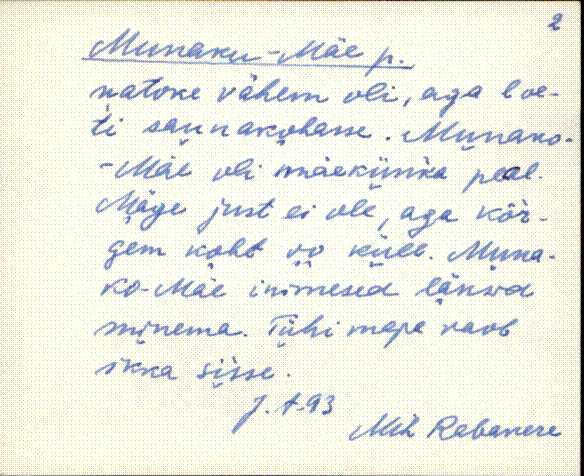 2
Munaku-Mäe p.
natoke vähem oli, aga loe-
ti saunakohasse. Munako-
-Mäe oli mäekünka peal.
Mäge just ei ole, aga kõr-
gem koht oo küll. Muna-
ko-Mäe inimesed läksid
minema. Tühi maja vaob
ikka sisse.
J. A-93
Mih Rebanere